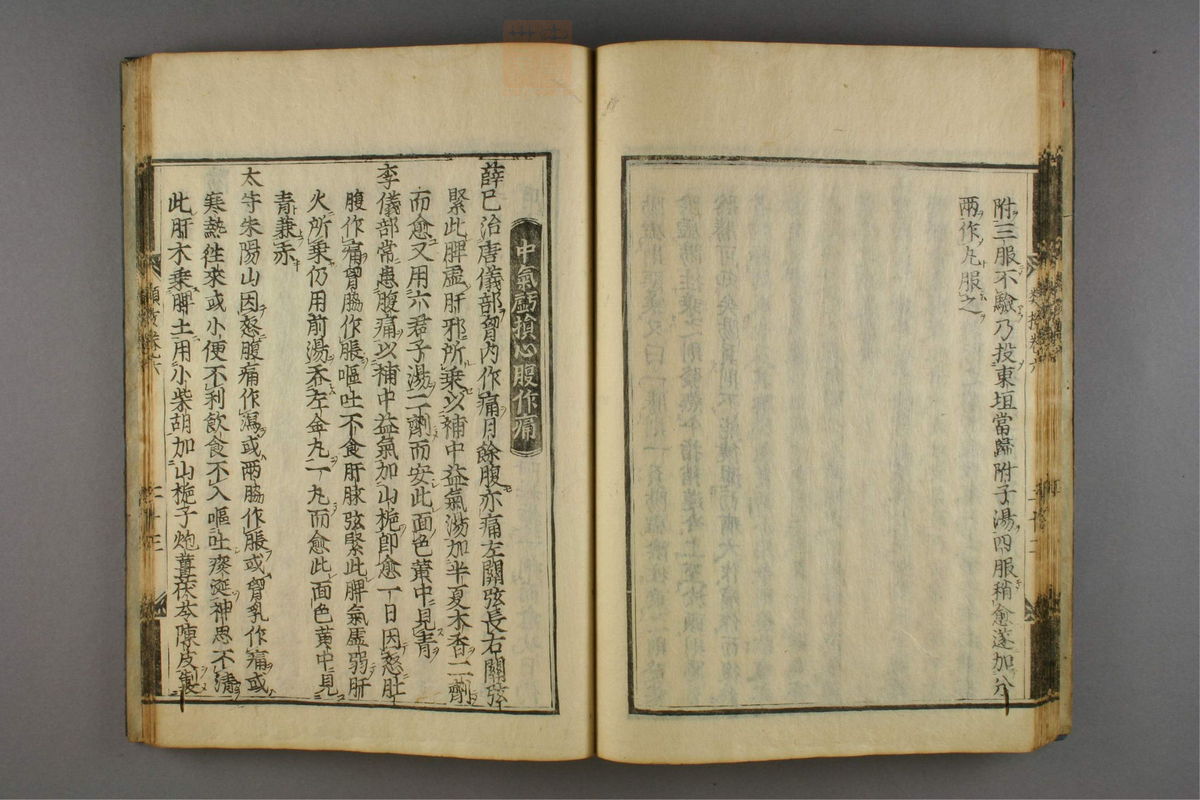 附三服不驗乃投東垣當歸附子湯四服稍愈遂加分
兩作丸服之
中氣虧損心腹作痛
薛已治唐儀部胷內作痛月餘腹亦痛左關弦長右關弦
緊此脾虛肝邪所乘以補中益氣湯加半夏木香二劑
而愈又用六君子湯二劑而安此面色黄中見青
李儀部常患腹痛以補中益氣加山梔即愈一日因怒肚
腹作痛胷脇作脹嘔吐不食肝脉弦緊此脾氣虛弱肝
火所乘仍用前湯吞左金丸一丸而愈此面色黄中見
青兼赤
太守朱陽山因怒腹痛作瀉或兩脇作脹或胷乳作痛或
寒熱徃來或小便不利飲食不入嘔吐痰涎神思不清
此肝木乘脾土用小柴胡加山梔子炮薑茯苓陳皮製